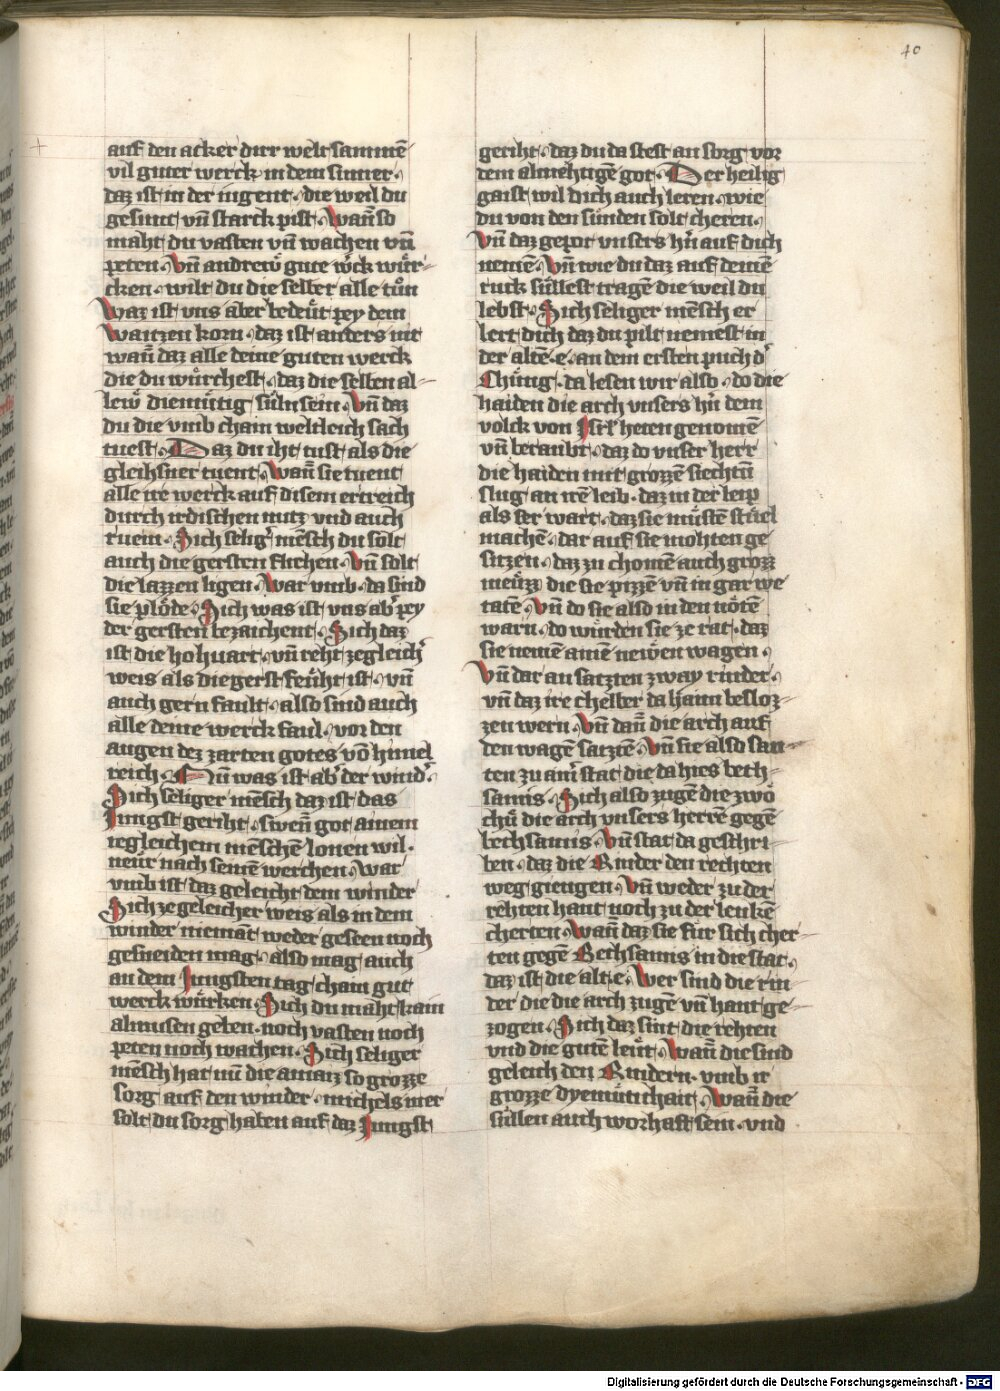 40
auf den acker dirr welt sammē
vil guter werck in dem sumer·
daz ist in der iugent· die weil du
gesunt vn̄ starck pist· Wan̄ so
maht du vasten vn̄ wachen vn̄
peten· Vn̄ andrew̄ gute w̓ck wu̓r-
cken· wilt du die selber alle tu̓n
Waz ist vns aber bedeu̓t pey dem
waitzen korn· daz ist anders nit
wan̄ daz alle deine guten werck
die du wu̓rchest· daz die selben al-
lew̄ diemu̓tig su̓ln sein· Vn̄ daz
du die vmb chain weltleich sach
tuest· Daz du iht tust als die
gleihsner tuent· Wan̄ sie tuent
alle ire werck auf disem ertreich
durch irdischen nutz vnd auch
ruem· Sich selig̓ mēsch du solt
auch die gersten flichen· Vn̄ solt
die lazzen ligen· War vmb· da sind
sie plo̓de· Sich was ist vns ab̓ pey
der gersten bezaichent· Sich daz
ist die hohuart· vn̄ reht zegleich̓
weis als die gerst feu̓ht ist· vn̄
auch gern fault· also sind auch
alle deine werck faul· vor den
augen dez zarten gotes vō himel
reich· Nū was ist ab̓ der wind̓·
Sich seliger mēsch daz ist das
Jungst geriht· swen̄ got ainem
iegleichem mēschē lonen wil·
neu̓r nach seinē werchen· War
vmb ist daz geleicht dem winder
Sich ze geleicher weis als in dem
winder niemāt weder geseen noch
gesneiden mag· also mag auch
an dem Jungsten tag chain gut
werck wu̓rken· Sich du maht kain
almusen geben· noch vasten noch
peten noch wachen· Sich seliger
mēsch hat nū die amaiz so grozze
sorg auf den winder· michels mer
solt du sorg haben auf daz Jungst
geriht· daz du da stest an sorg vor
dem almehtigē got· Der heilig
gaist wil dich auch leren· wie
du von den su̓nden solt cheren·
Vn̄ daz gepot vnsers h̓n auf dich
nemē· Vn̄ wie du daz auf deinē
ruck su̓llest tragē die weil du
lebst· Sich seliger mēsch er
lert dich daz du pilt nemest in
der altē· e· an dem ersten puch d̓
Chu̓nig· da lesen wir also· do die
haiden die arch vnsers h̓n dem
volck von Isrl̓ heten genomē
vn̄ beraubt· daz do vnser herr
die haiden mit grozzē siechtū
slug an irē leib· daz in der leip
als ser wart· daz sie mu̓stē stu̓el
machē· dar auf sie mohten ge
sitzen· daz zu chomē auch grozz
meu̓zz die sie pizzē vn̄ in gar we
tatē· Vn̄ do sie also in den no̓tē
warn· do wurden sie ze rat· daz
sie nemē ainē newen wagen·
Vn̄ dar an satzten zway rinder·
vn̄ daz ire chelber da haim besloz-
zen wern· Vn̄ dan̄ die arch auf
den wagē satztē· Vn̄ sie also san-
ten zu ain̓ stat die da hies beth-
samis· Sich also zugē die zwo̓
chu̓ die arch vnsers herrē gegē
bethsamis· Vn̄ stat da geschri-
ben· daz die Rinder den rechten
weg giengen· Vn̄ weder zu der
rehten hant noch zu der lenkē
cherten· Wan̄ daz sie fu̓r sich cher-
ten gegē Bethsamis in die stat·
daz ist die alt· e· Wer sind die rin-
der die die arch zugē vn̄ hant ge-
zogen· Sich daz sint die rehten
vnd die gutē leu̓t· Wan̄ die sind
geleich den Rindern· vmb ir
grozze dyemu̓tichait· Wan̄ die
su̓llen auch worhaft sein· vnd
Digitalisierung gefördert durch die Deutsche Forschungsgemeinschaft - DFG